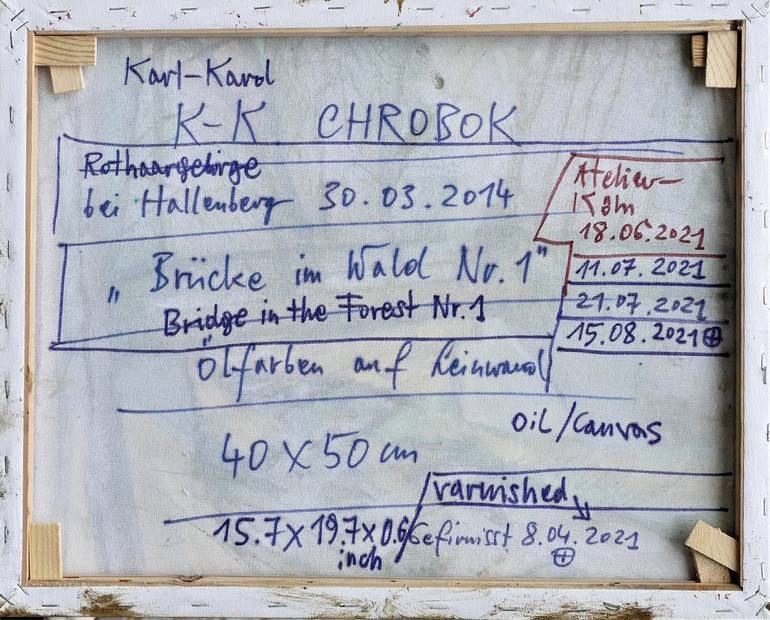 Karl-Karol
K-K CHROBOK
Rothaargebirge
bei Hallenberg 30.03.2014
Atelier-
Köln
18.06.2021
11.07.2021
21.07.2021
15.08.2021 ⊕
„Brücke im Wald Nr.1"
Bridge in the Forest Nr.1
Ölfarben auf Leinwand
oil/canvas
40 x 50 cm
varnished
15.7 x 19.7 x 0.6
inch
Gefirnisst 8.04.2021
⊕